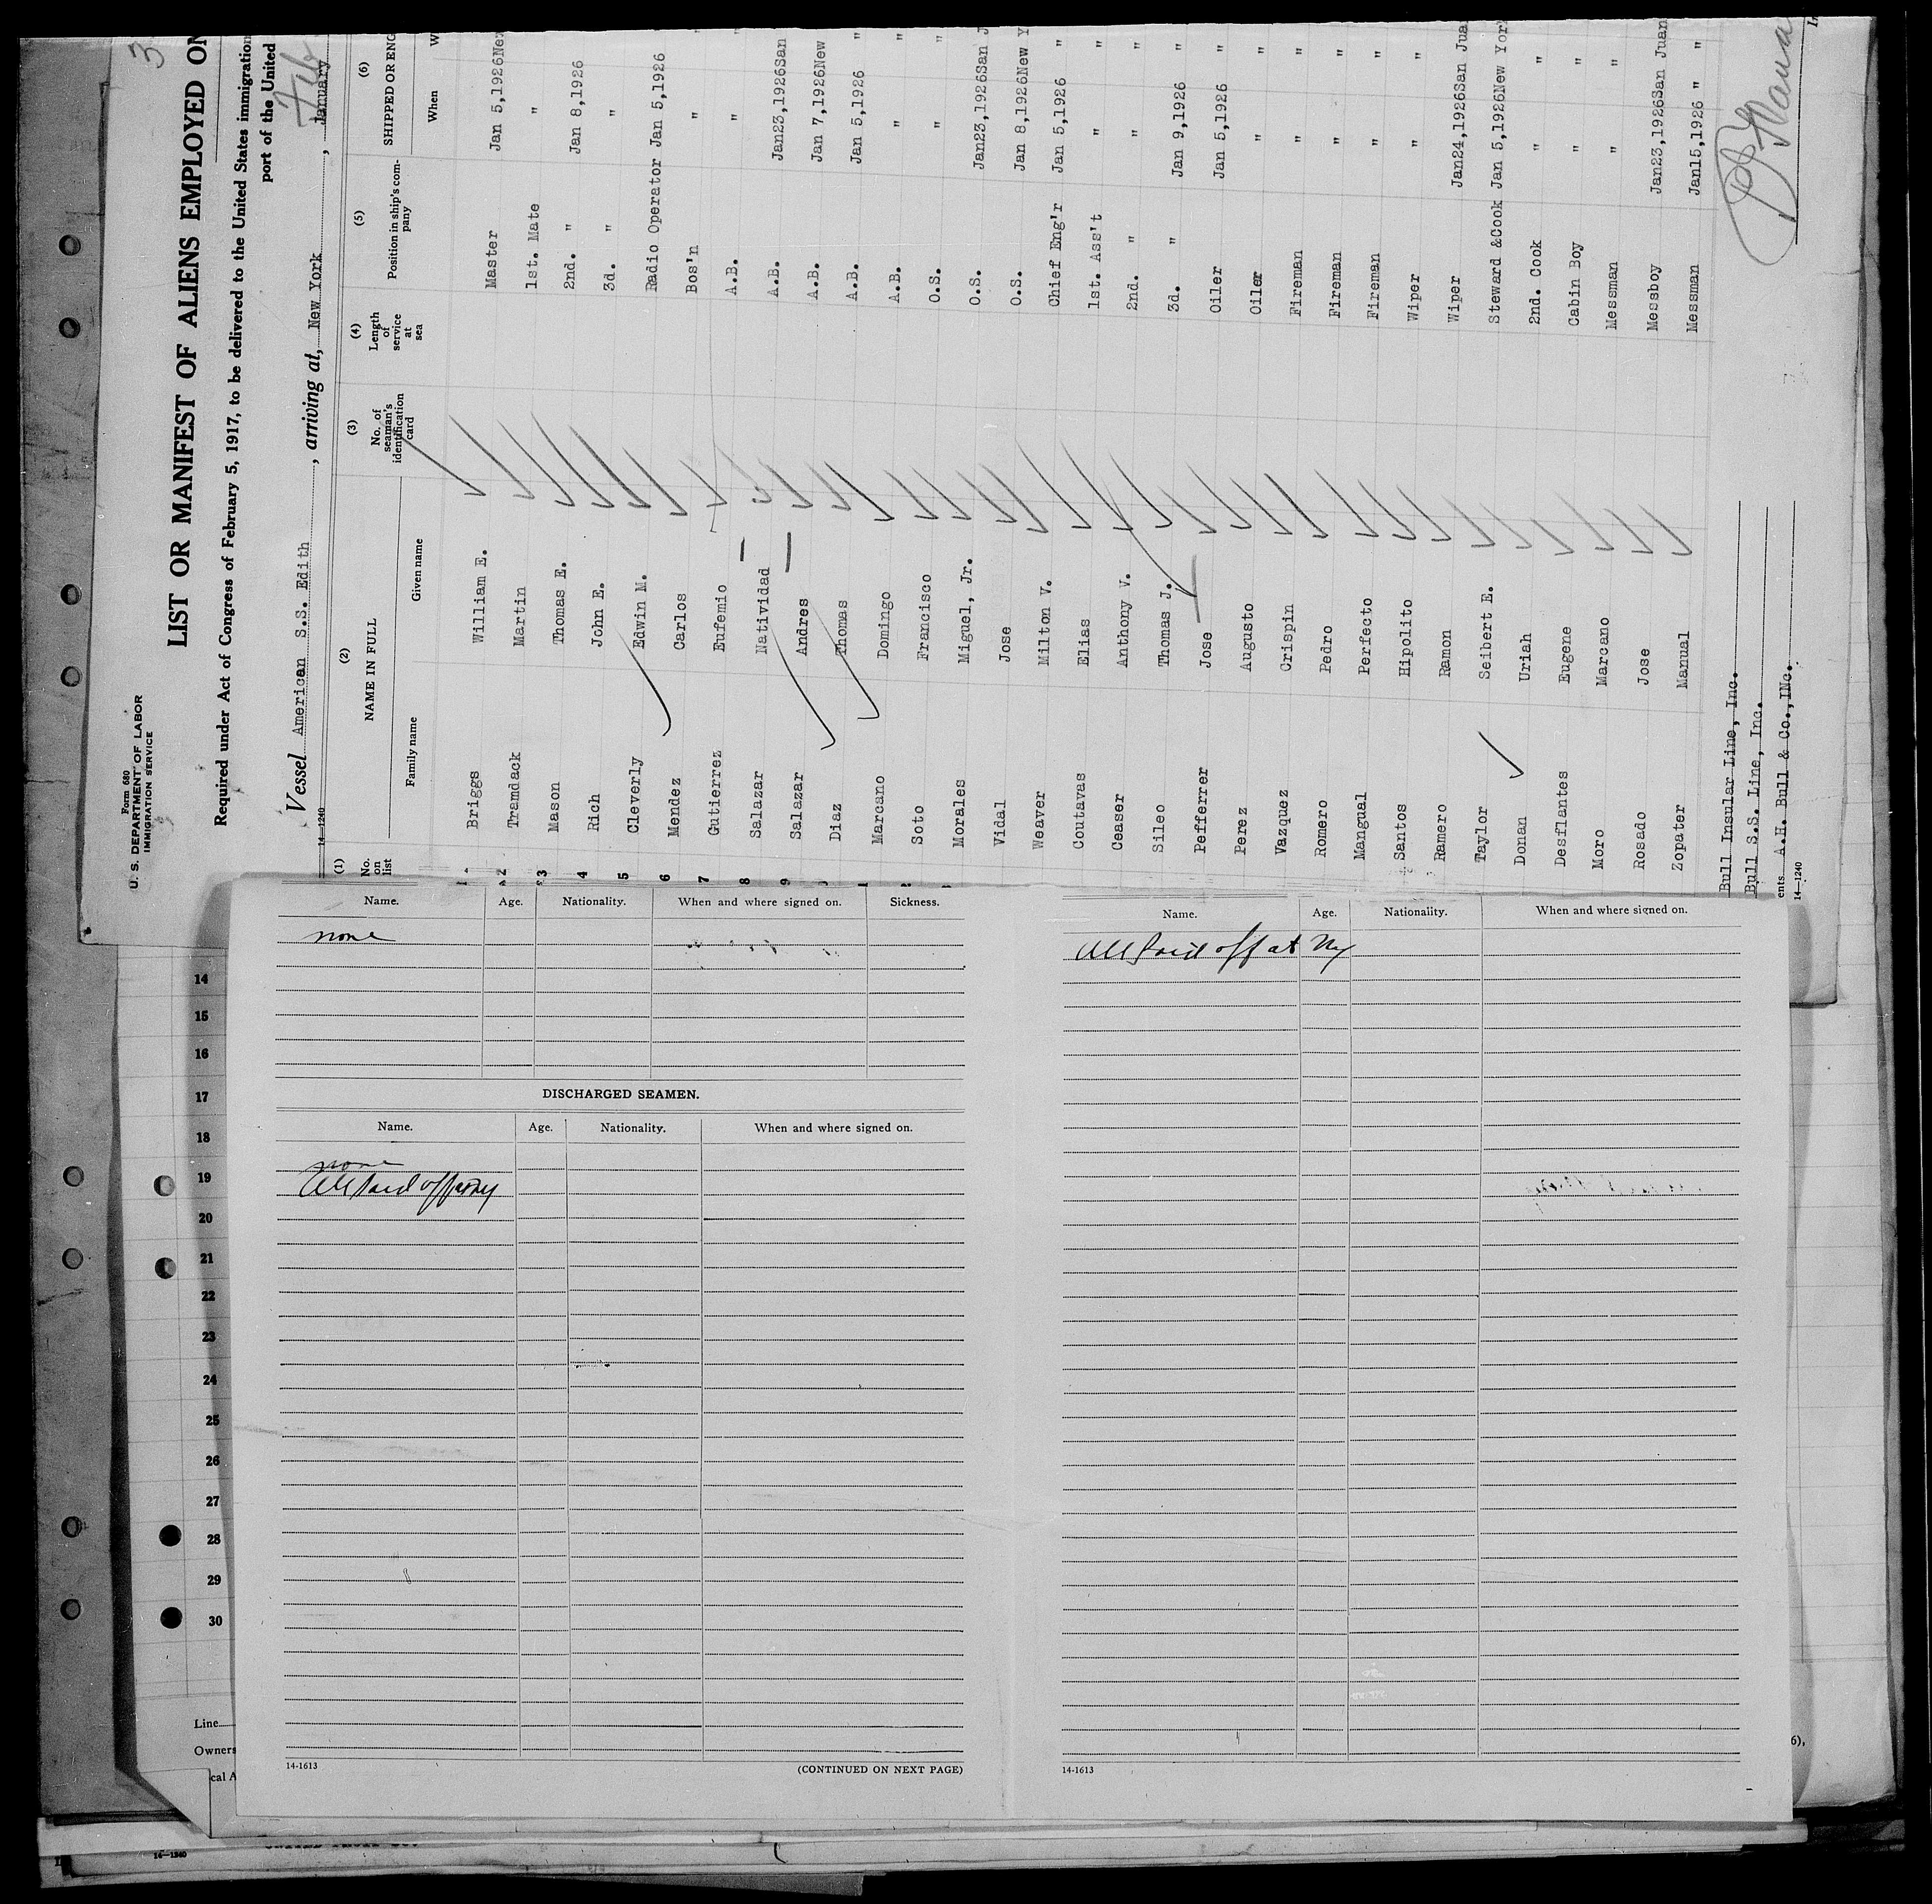 Form 680
U. S. DEPARTMENT OF LABOR
IMMIGRATION SERVICE
3
LIST OR MANIFEST OF ALIENS EMPLOYED ON
Required under Act of Congress of February 5, 1917, to be delivered to the United States immigration
port of the United
Vessel American S.S. Edith , arriving at, New York , January
14—1240
(1) (2) (3) (4) (5) (6)
No. on list NAME IN FULL No. of seaman's identification card Length of service at sea Position in ship's company SHIPPED OR ENG
Family name Given name When W
1 Briggs William E. Master Jan 5,1926 New
2 Tramdack Martin 1st. Mate " "
3 Mason Thomas E. 2nd. " Jan 8,1926
4 Rich John E. 3d. " " "
5 Cleverly Edwin M. Radio Operator Jan 5,1926
6 Mendez Carlos Bos'n " "
7 Gutierrez Eufemio A.B. " "
8 Salazar Natividad A.B. Jan23,1926San
9 Salazar Andres A.B. Jan 7,1926New
Diaz Thomas A.B. Jan 5,1926 "
Marcano Domingo A.B. " "
Soto Francisco O.S. " "
Morales Miguel, Jr. O.S. Jan23,1926San J
Vidal Jose O.S. Jan 8,1926New Y
Weaver Milton V. Chief Eng'r Jan 5,1926 "
Coutavas Elias 1st. Ass't " "
Ceaser Anthony V. 2nd. " " "
Sileo Thomas J. 3d. " Jan 9,1926 "
Pefferrer Jose Oiler Jan 5,1926 "
Perez Augusto Oiler " "
Vazquez Crispin Fireman " "
Romero Pedro Fireman " "
Mangual Perfecto Fireman " "
Santos Hipolito Wiper " "
Ramero Ramon Wiper Jan24,1926San Jua
Taylor Seibert E. Steward &Cook Jan 5,1926New Yor
Donan Uriah 2nd. Cook " "
Desflantes Eugene Cabin Boy " "
Moro Marcano Messman " "
Rosado Jose Messboy Jan23,1926San Juan
Zopater Manual Messman Jan15,1926 " "
Bull Insular Line, Inc.
Bull S.S. Line, Inc.
ents A.H. Bull & Co.,INc.
14—1240
Name. Age. Nationality. When and where signed on. Sickness.
none
DISCHARGED SEAMEN.
Name. Age. Nationality. When and where signed on.
none
All Paid off NY
14-1613
(CONTINUED ON NEXT PAGE)
Name. Age. Nationality. When and where signed on.
All Paid off at NY
14-1613
14
15
16
17
18
19
20
21
22
23
24
25
26
27
28
29
30
Line
Owners
cal A
6),
14—1240